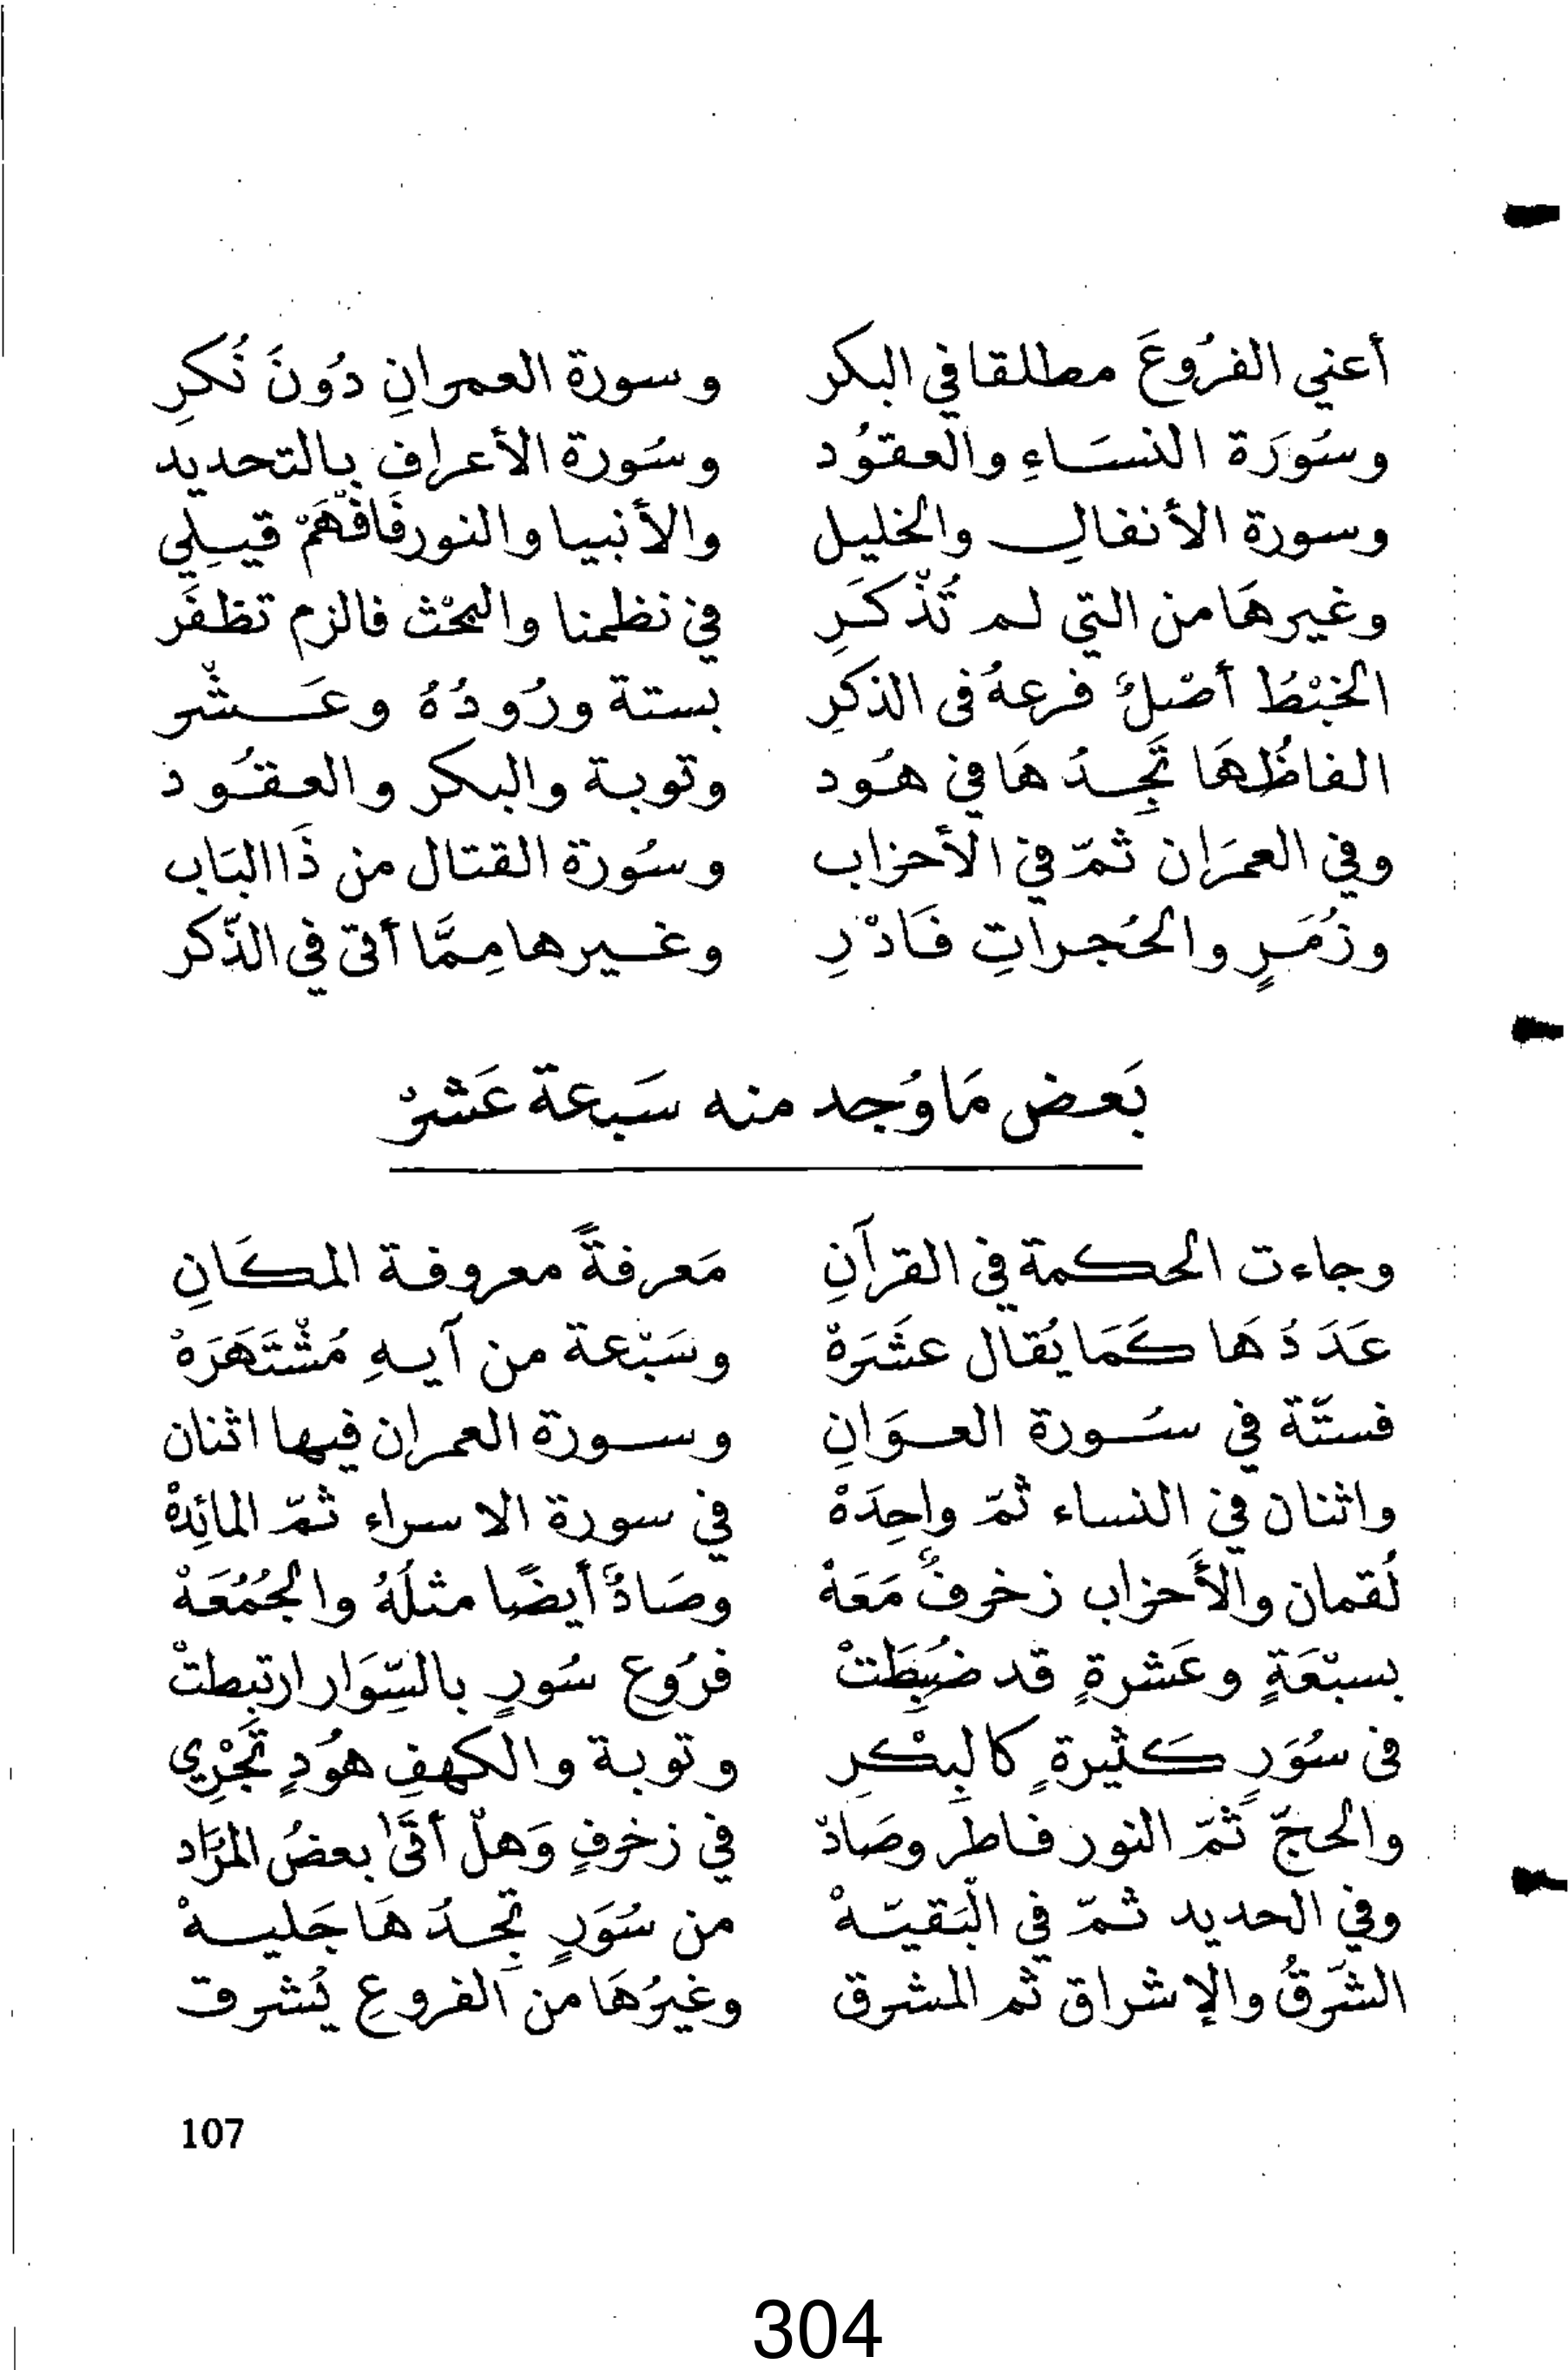 أعني الفرُوعَ مطلقا في البكر وسورة العمرانِ دُونَ نُكرِ
وسُورَة النسَاءِ والعقوُد وسُورة الأعراف بالتحديد
وسورة الأنفال والخليل والأنبيا والنور فَافْهَمْ قيلِي
وغيرهَا من التي لم تُذْكَرِ في نظمنا والبحْث فالزم تظفَر
الخبْطُ أصْلٌ فرعهُ فى الذكرِ بستة ورُودُهُ وعَشْر
الفاظُهَا تَجِدُهَا في هُود وتوبة والبكر والعقُود
وفي العمرَان ثمّ في الأحزاب وسُورة القتال من ذَا البَاب
وزُمَرٍ والحُجراتِ فَادْرِ وغيرها مِمَّا أتى في الذّكر
بَعض مَا وُجد منه سَبعة عَشرْ
وجاءت الحكمة في القرآنِ مَعرفةً معروفة المكَانِ
عَدَدُهَا كَمَا يُقال عشَرَهْ وسَبْعة من آيهِ مُشْتَهَرَهْ
فستّة في سُورة العوَانِ وسورة العمران فيها اثنان
واثنان في النساء ثمّ واحِدَهْ في سورة الاسراء ثمّ المائِدهْ
لُقمان والأَحزاب زخرفٌ مَعَهْ وصَادٌ أيضًا مثلَهُ والجُمُعَهْ
بسبْعَةٍ وعَشرةٍ قد ضُبِطَتْ فرُوع سُورٍ بالسِّوَار ارتبطتْ
فى سُوَرٍ كثيرةٍ كالبِكْرِ وتوبة والكهفِ هوُدٍ تَجْرِي
والحجّ ثَمّ النور فاطر وصَادْ في زخرفٍ وَهلْ أتَى بعضُ المرَاد
وفي الحديد ثمّ في البَقيّهْ من سُوَرٍ تجِدُهَا جَليهْ
الشَرقُ والإشراق ثم المشرق وغيرُهَا من الفروعِ يُشرق
107
304